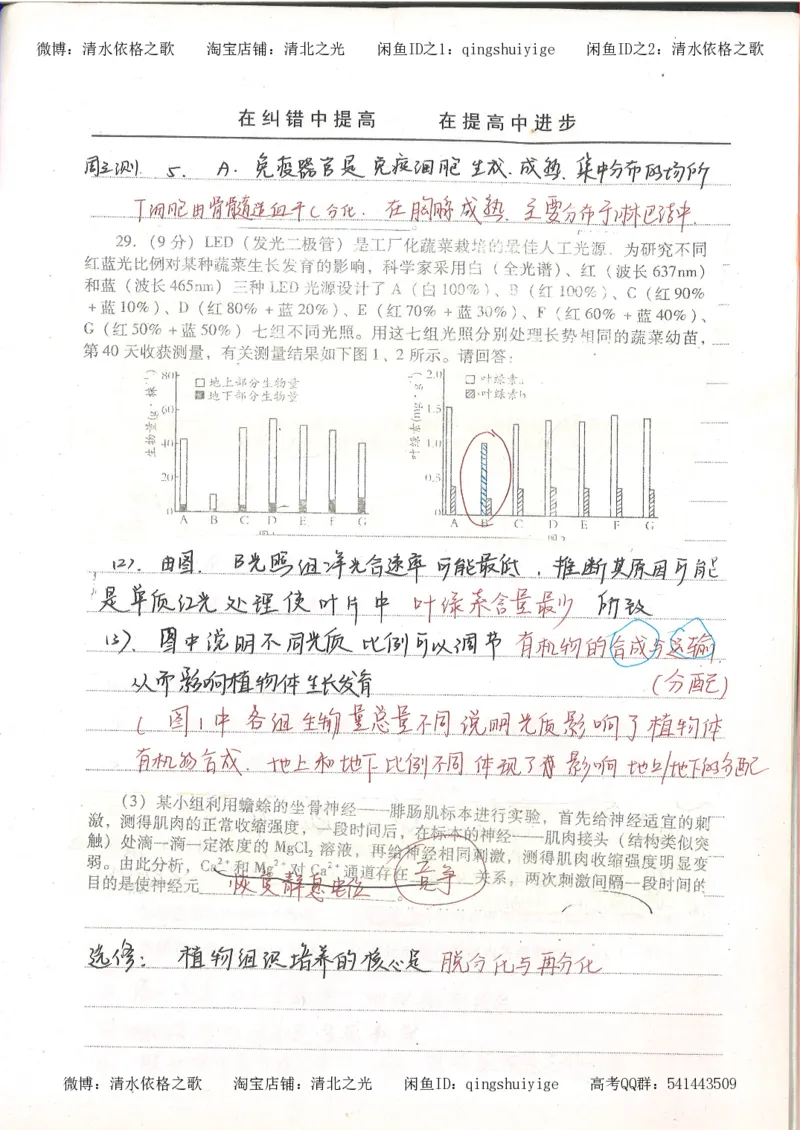 微博：清水依格之歌 淘宝店铺：清北之光 闲鱼ID之1：qingshuiyige 闲鱼ID之2：清水依格之歌
在纠错中提高 在提高中进步
周三测. 5. A. 免疫器官是免疫细胞生成.成熟.集中分布的场所
T细胞由骨髓造血干C分化. 在胸腺成熟. 主要分布于淋巴结中.
29.（9分）LED（发光二极管）是工厂化蔬菜栽培的最佳人工光源。为研究不同
红蓝光比例对某种蔬菜生长发育的影响，科学家采用白（全光谱）、红（波长637nm）
和蓝（波长465nm）三种LED光源设计了A（白100%）、B（红100%）、C（红90%
+蓝10%）、D（红80%+蓝20%）、E（红70%+蓝30%）、F（红60%+蓝40%）、
G（红50%+蓝50%）七组不同光照。用这七组光照分别处理长势相同的蔬菜幼苗，
第40天收获测量，有关测量结果如下图1、2所示。请回答：
生物量(g·株⁻¹)
80
60
40
20
0
□地上部分生物量
■地下部分生物量
A B C D E F G
图1
叶绿素(mg·g⁻¹)
2.0
1.5
1.0
0.5
0
□叶绿素a
▨叶绿素b
A B C D E F G
图2
(2). 由图. B光照组净光合速率可能最低，推断其原因可能
是单质红光处理使叶片中 叶绿素含量最少 所致
(3). 图中说明不同光质比例可以调节 有机物的合成与运输
从而影响植物体生长发育 (分配)
( 图1中各组生物量总量不同说明光质影响了植物体
有机物合成. 地上和地下比例不同体现了影响地上/地下的分配
(3) 某小组利用蟾蜍的坐骨神经——腓肠肌标本进行实验，首先给神经适宜的刺
激，测得肌肉的正常收缩强度，一段时间后，在标本的神经——肌肉接头（结构类似突
触）处滴一滴一定浓度的MgCl₂溶液，再给神经相同刺激，测得肌肉收缩强度明显变
弱。由此分析，Ca²⁺和Mg²⁺对Ca²⁺通道存在 竞争 关系，两次刺激间隔一段时间的
目的是使神经元 恢复静息电位 。
选修： 植物组织培养的核心是 脱分化与再分化
微博：清水依格之歌 淘宝店铺：清北之光 闲鱼ID：qingshuiyige 高考QQ群：541443509